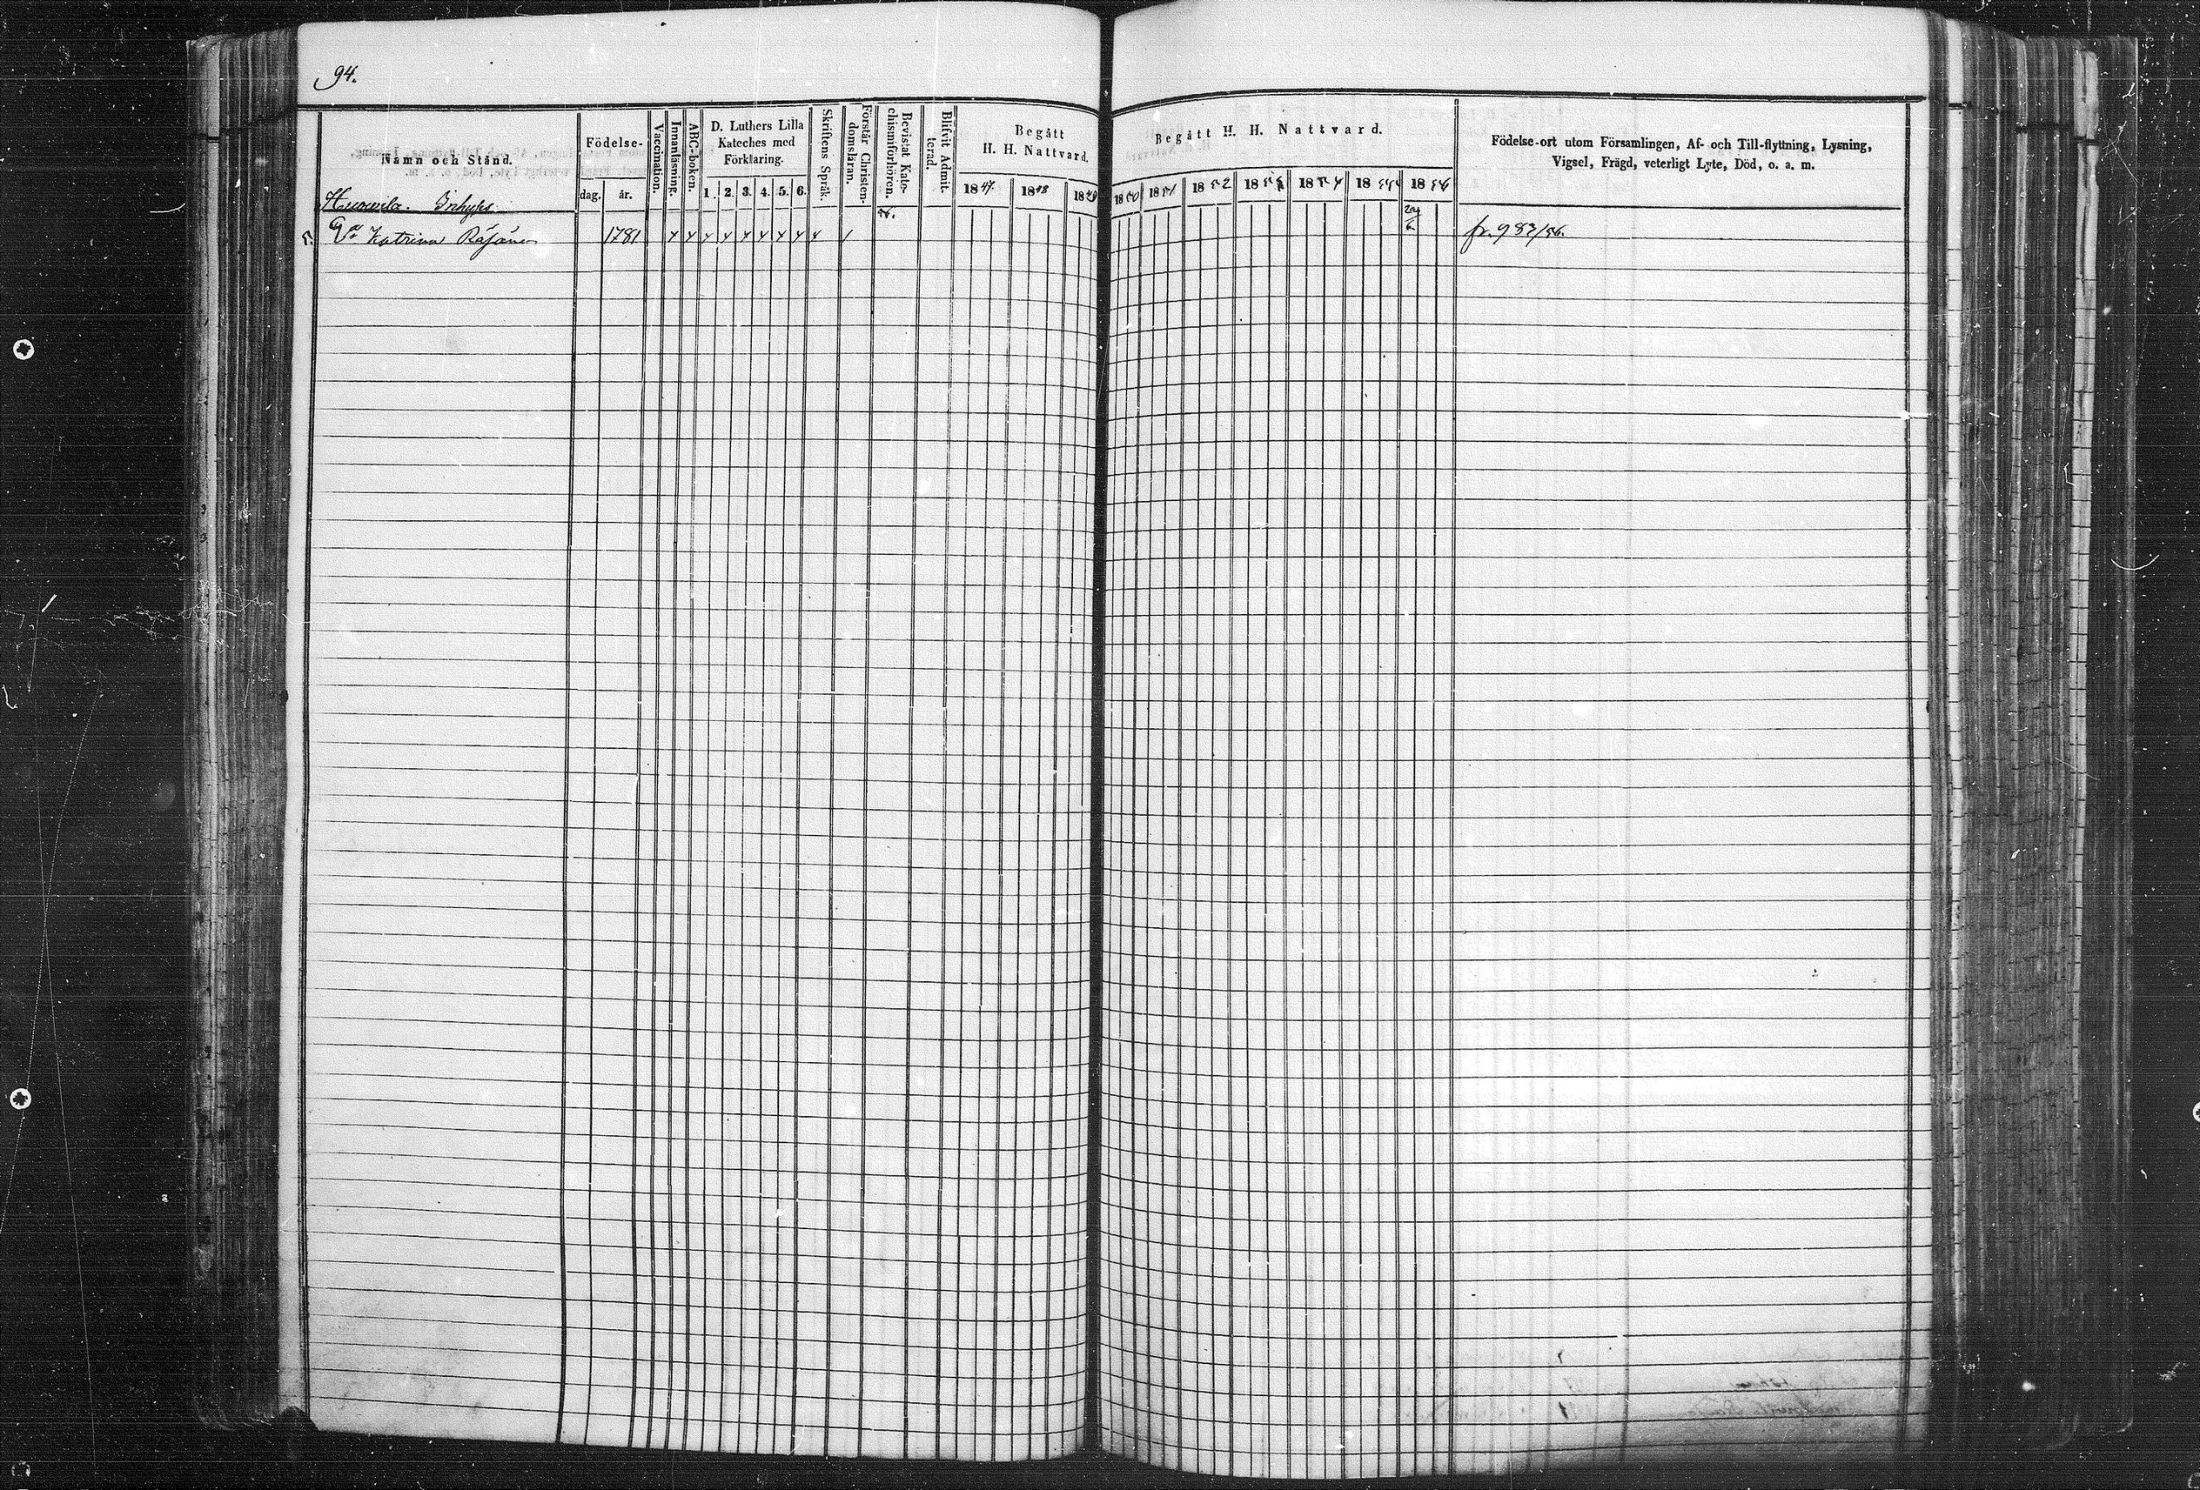 94.
Namn och Stånd.
Födelse-
dag. år.
Vaccination.
Innanläsning.
ABC-boken.
D. Luthers Lilla
Kateches med
Förklaring.
1. 2. 3. 4. 5. 6.
Skriftens Språk.
Förstår Christen-
domsläran.
Bevistat Kate-
chismiförhören.
Blifvit Admit-
terad.
Begått
H. H. Nattvard.
1847 1848 1849
Begått H. H. Nattvard.
1850 1851 1852 1853 1854 1855 1856
Födelse-ort utom Församlingen, Af- och Till-flyttning, Lysning,
Vigsel, Frägd, veterligt Lyte, Död, o. a. m.
Inhyses
56.
Katrina Räsänen 1781 fr. 983/56.